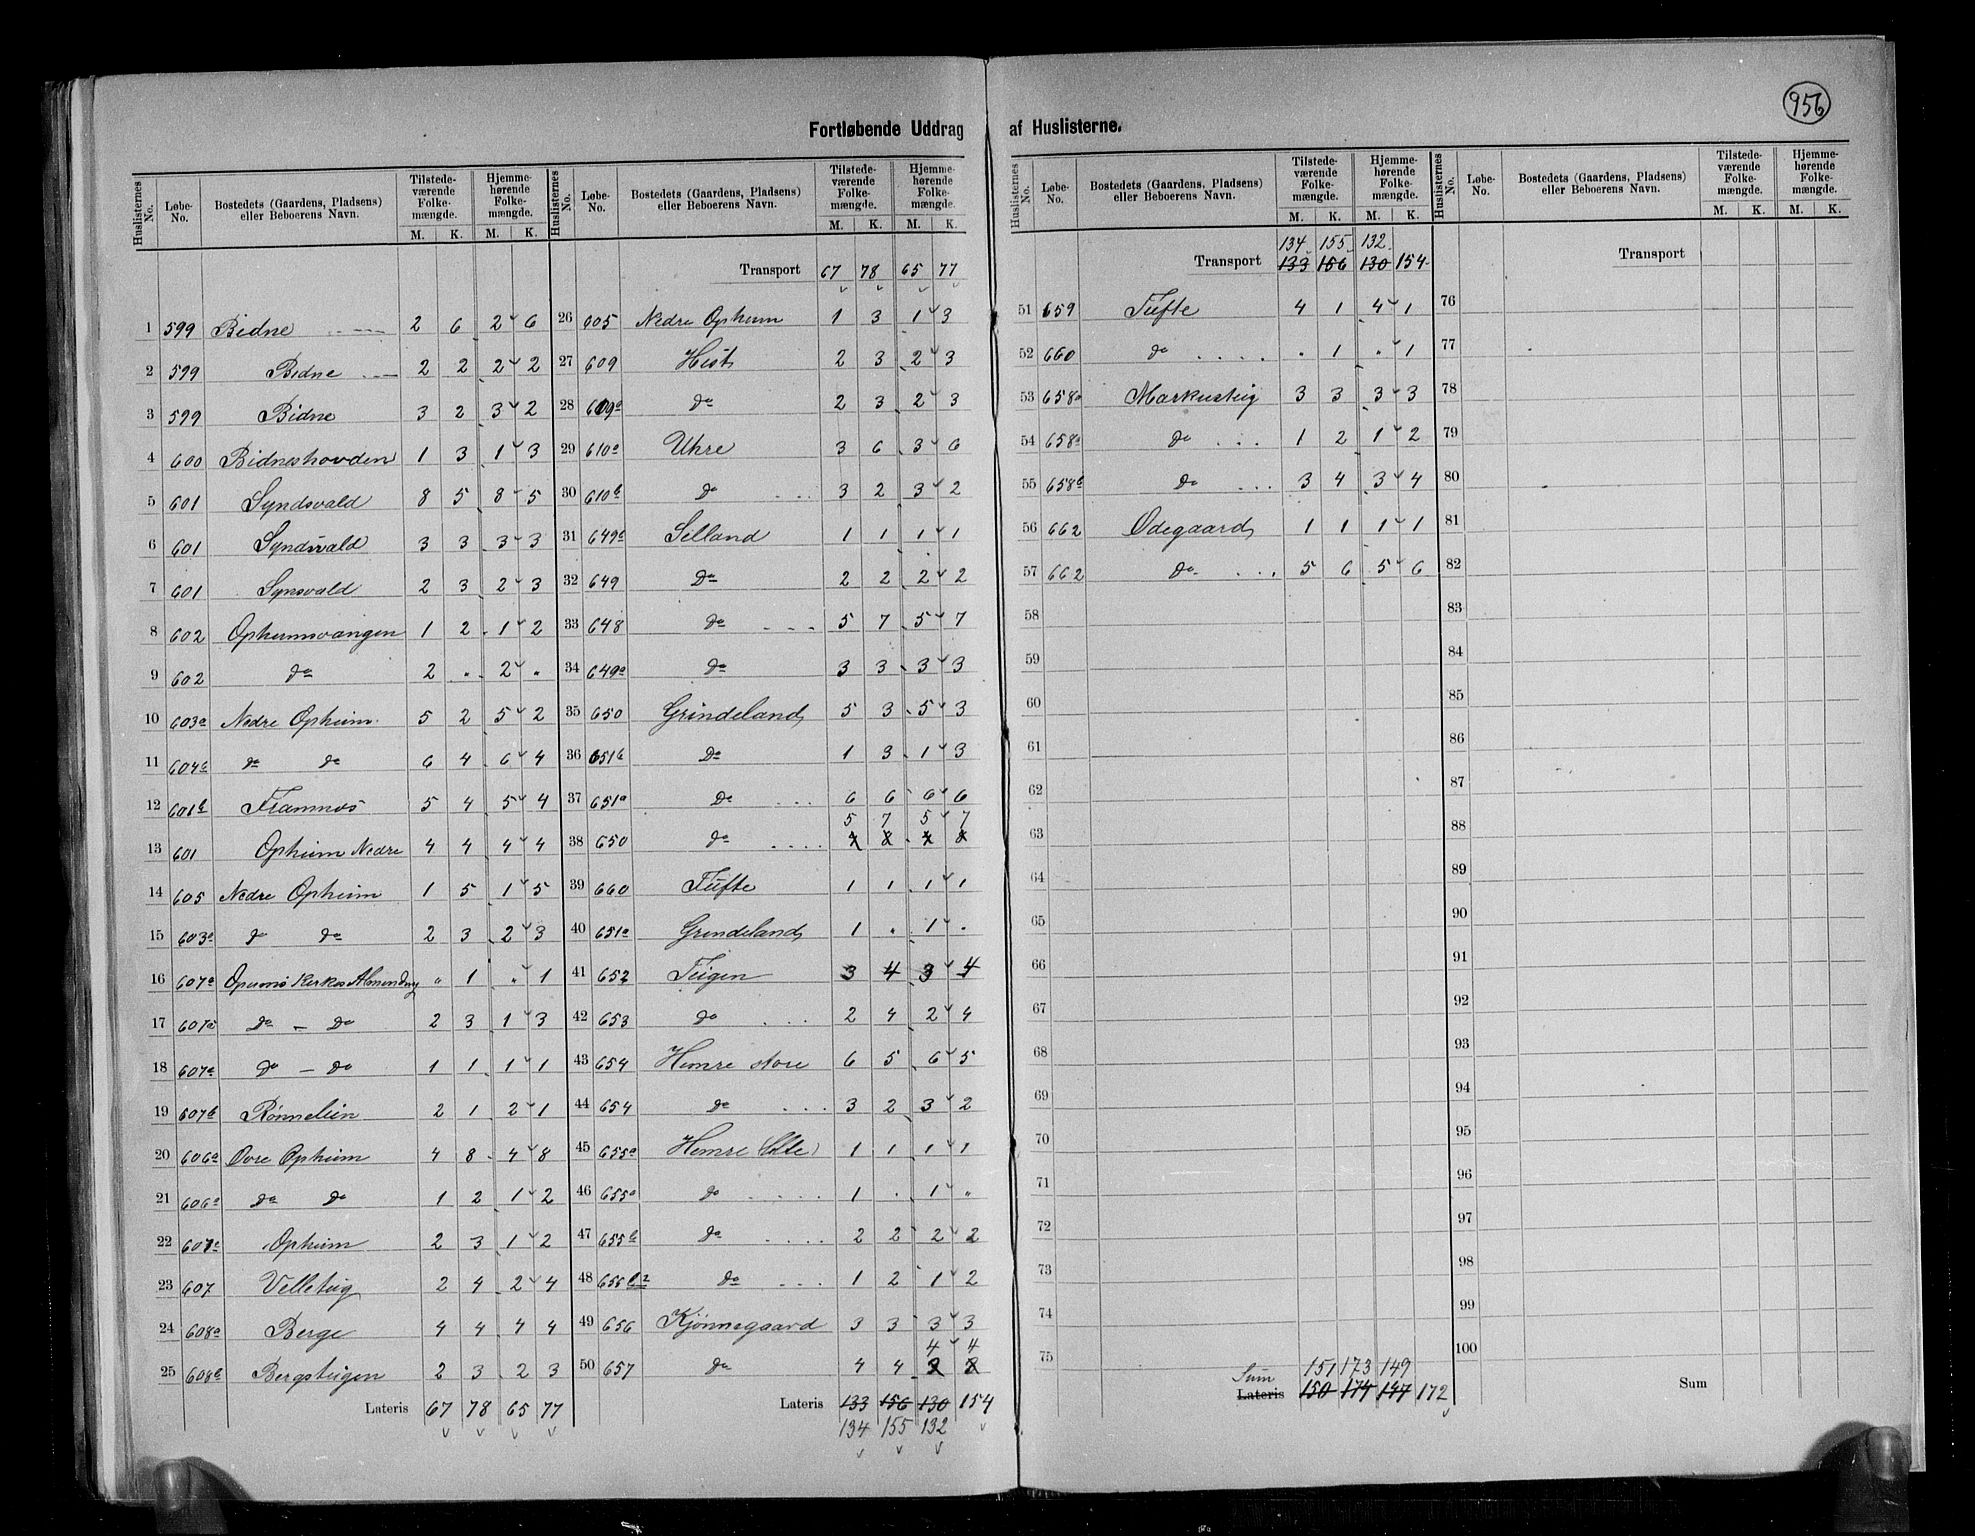 956
Fortløbende Uddrag af Huslisterne.
Huslisternes No. Løbe-No. Bostedets (Gaardens, Pladsens) eller Beboerens Navn. Tilstedeværende Folkemængde. M. K. Hjemmehørende Folkemængde. M. K.
1 599 Bidne 2 6 2 6
2 599 Bidne 2 2 2 2
3 599 Bidne 3 2 3 2
4 600 Bidneshovden 1 3 1 3
5 601 Syndsvald 8 5 8 5
6 601 Syndsvald 3 3 3 3
7 601 Synsvald 2 3 2 3
8 602 Opheimsvangen 1 2 1 2
9 602 do 2 " 2 "
10 603a Nedre Opheim 5 2 5 2
11 604b do do 6 4 6 4
12 601b Framnæs 5 4 5 4
13 601 Opheim Nedre 4 4 4 4
14 605 Nedre Opheim 1 5 1 5
15 603a do do 2 3 2 3
16 607a " 1 " 1
17 607a do - do 2 3 1 3
18 607a do - do 1 1 1 1
19 607b Rønnelien 2 1 2 1
20 606a Ovre Opheim 4 8 4 8
21 606a do do 1 2 1 2
22 607a Opheim 2 3 1 2
23 607 Velleteig 2 4 2 4
24 608a Berge 4 4 4 4
25 608b Bergsteigen 2 3 2 3
Lateris 67 78 65 77
Huslisternes No. Løbe-No. Bostedets (Gaardens, Pladsens) eller Beboerens Navn. Tilstedeværende Folkemængde. M. K. Hjemmehørende Folkemængde. M. K.
Transport 67 78 65 77
26 605 Nedre Opheim 1 3 1 3
27 609 Hest 2 3 2 3
28 609a do 2 3 2 3
29 610a Uhre 3 6 3 6
30 610b do 3 2 3 2
31 649a Selland 1 1 1 1
32 649 do 2 2 2 2
33 648 do 5 7 5 7
34 649a do 3 3 3 3
35 650 Grindeland 5 3 5 3
36 651b do 1 3 1 3
37 651a do 6 6 6 6
5 7 5 7
38 650 do 4 8 4 8
39 660 Tufte 1 1 1 1
40 651a Grindeland 1 " 1 "
41 652 Teigen 3 4 3 4
42 653 do 2 4 2 4
43 654 Hemre store 6 5 6 5
44 654 do 3 2 3 2
45 655a Hemre lille 1 1 1 1
46 655a do 1 . 1 "
47 655b do 2 2 2 2
48 655b2 do 1 2 1 2
49 656 Kjønnegaard 3 3 3 3
4 4
50 657 do 4 4
Lateris 133 156 130 154
134 155 132
Huslisternes No. Løbe-No. Bostedets (Gaardens, Pladsens) eller Beboerens Navn. Tilstedeværende Folkemængde. M. K. Hjemmehørende Folkemængde. M. K.
134 155 132
Transport 133 156 130 154
51 659 Tufte 4 1 4 1
52 660 do " 1 " 1
53 658a Markusteig 3 3 3 3
54 658a do 1 2 1 2
55 658b do 3 4 3 4
56 662 Odegaard 1 1 1 1
57 662 do 5 6 5 6
58
59
60
61
62
63
64
65
66
67
68
69
70
71
72
73
74
75
Sum 151 173 149
Lateris 150 174 147 172
Huslisternes No. Løbe-No. Bostedets (Gaardens, Pladsens) eller Beboerens Navn. Tilstedeværende Folkemængde. M. K. Hjemmehørende Folkemængde. M. K.
Transport
76
77
78
79
80
81
82
83
84
85
86
87
88
89
90
91
92
93
94
95
96
97
98
99
100
Sum